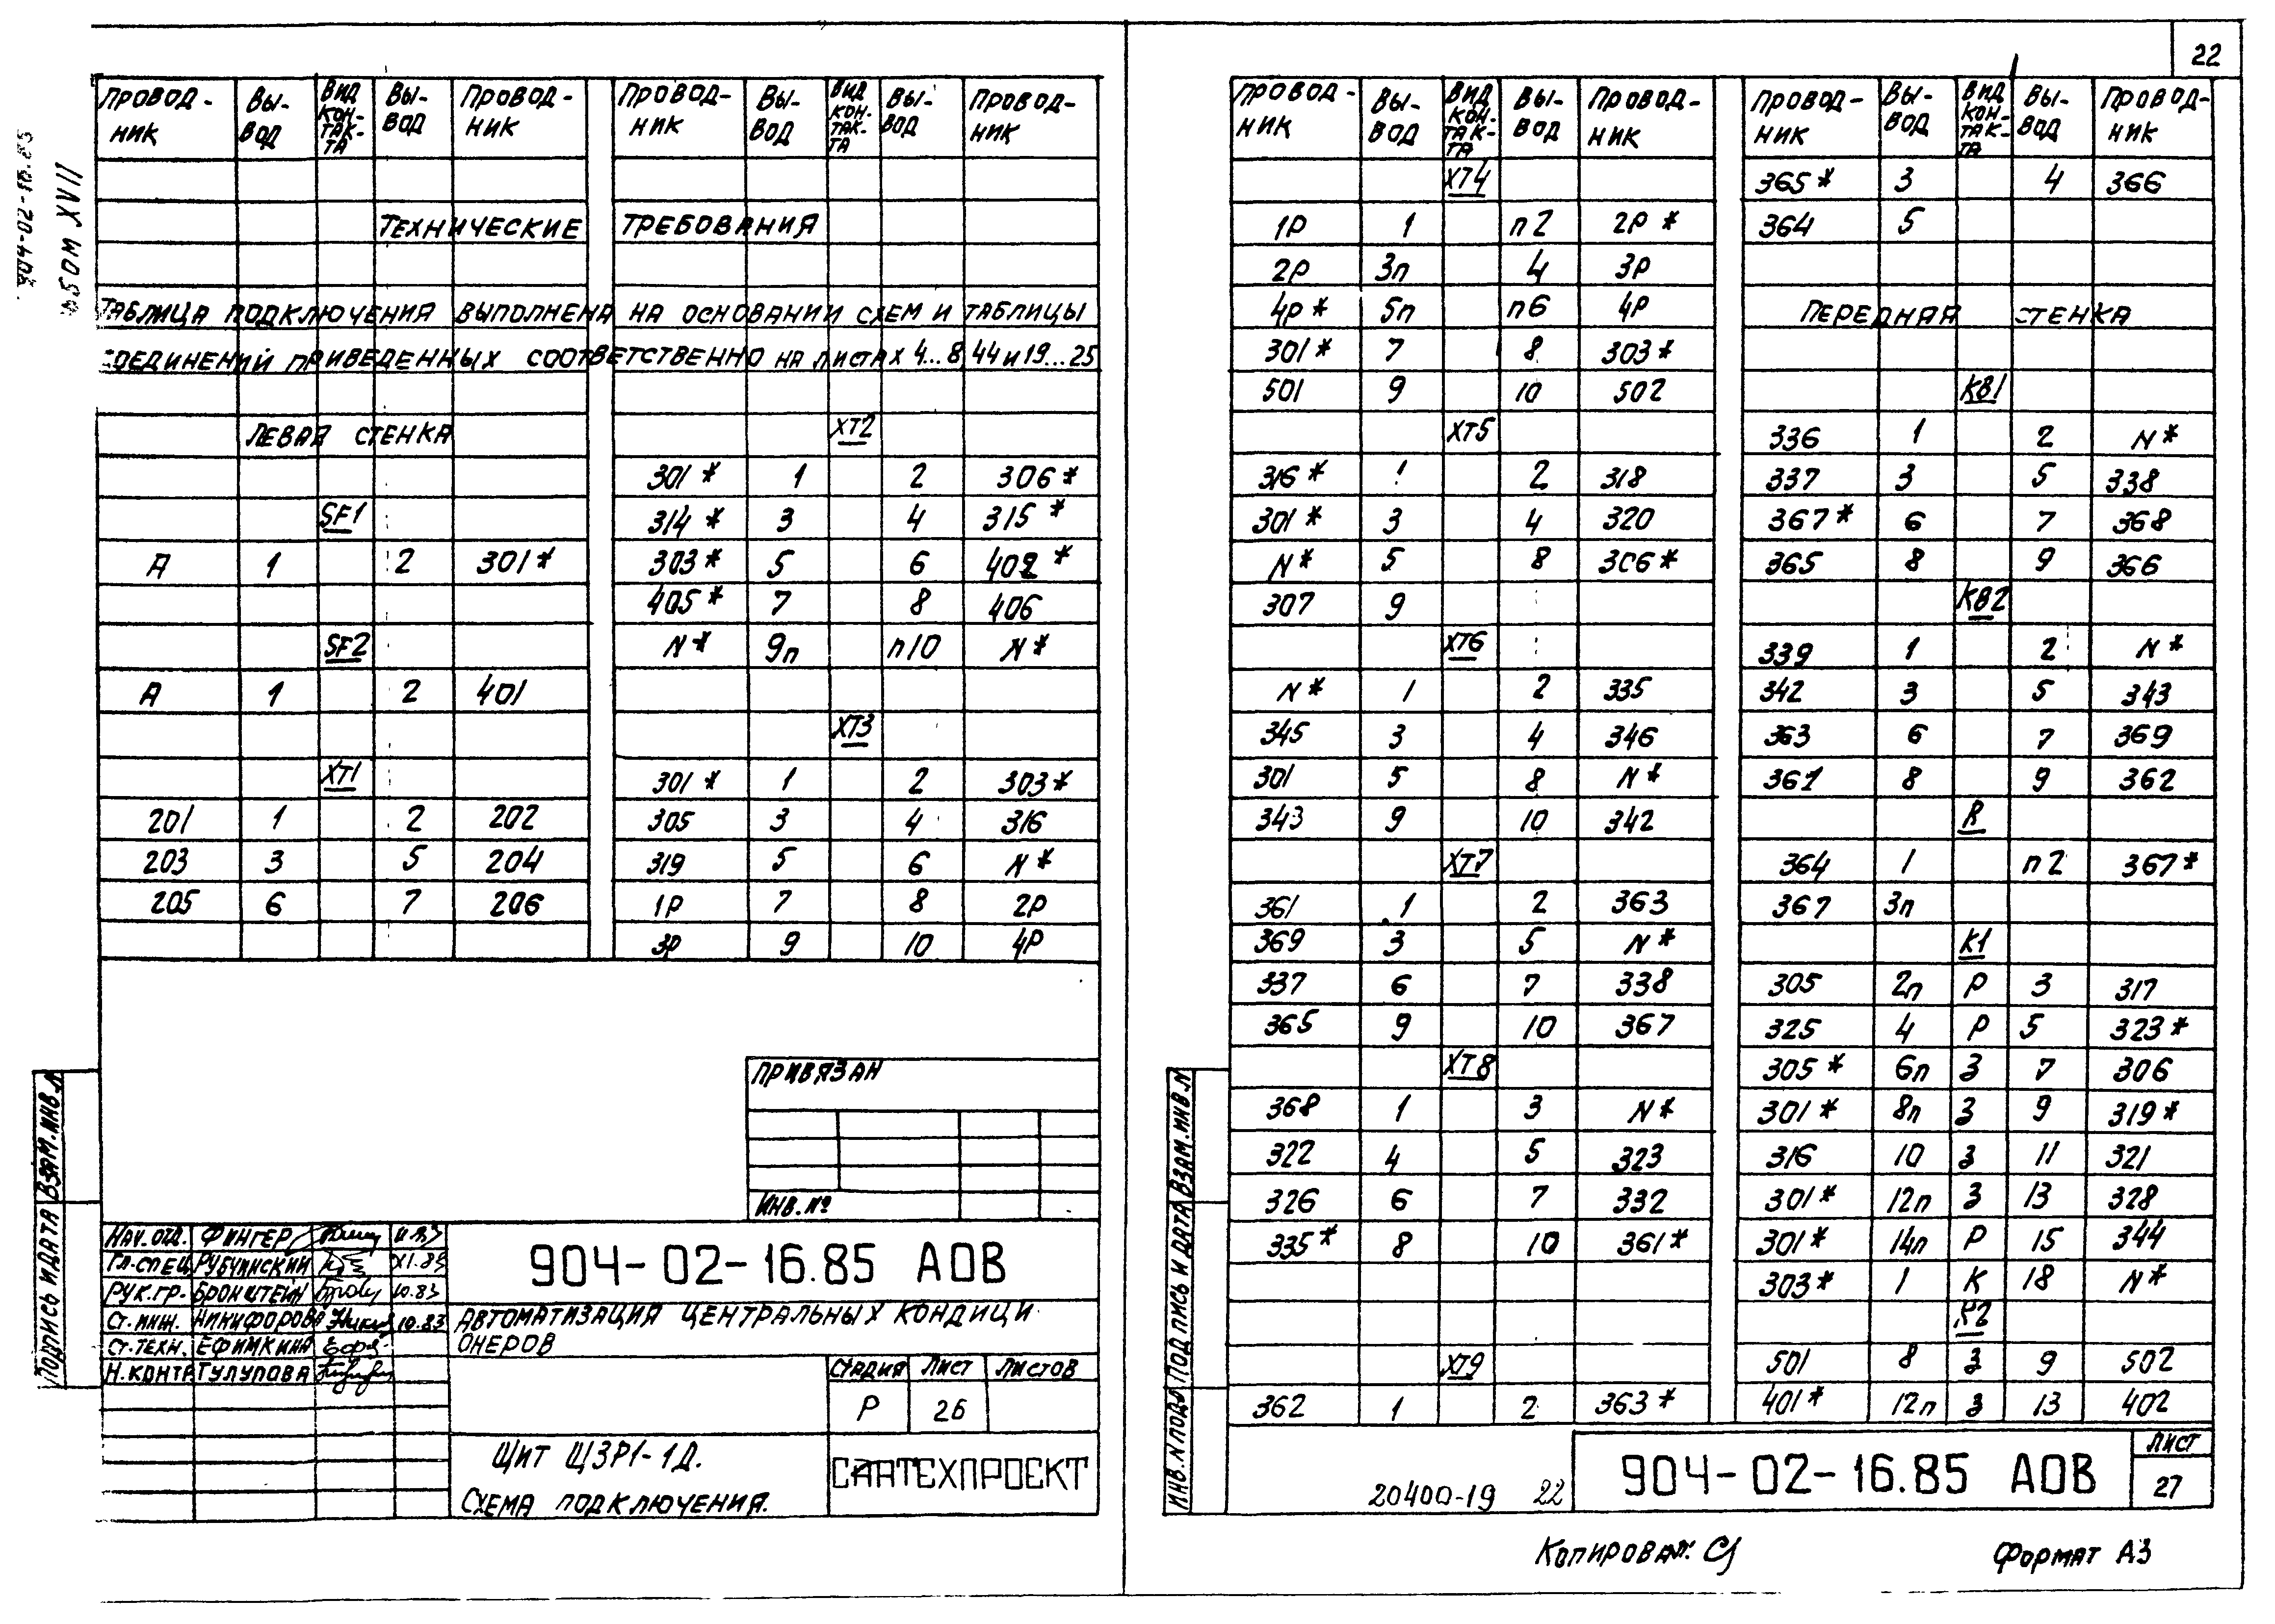 22
904-02-16.85
XVII
ПРОВОД-НИК ВЫ-ВОД ВИД КОН-ТАК-ТА ВЫ-ВОД ПРОВОД-НИК
ТЕХНИЧЕСКИЕ ТРЕБОВАНИЯ
ТАБЛИЦА ПОДКЛЮЧЕНИЯ ВЫПОЛНЕНА НА ОСНОВАНИИ СХЕМ И ТАБЛИЦЫ
СОЕДИНЕНИЙ ПРИВЕДЕННЫХ СООТВЕТСТВЕННО НА ЛИСТАХ 4...8, 44 и 19...25
ЛЕВАЯ СТЕНКА
SF1
А 1 2 301*
SF2
А 1 2 401
XT1
201 1 2 202
203 3 5 204
205 6 7 206
ПРОВОД-НИК ВЫ-ВОД ВИД КОН-ТАК-ТА ВЫ-ВОД ПРОВОД-НИК
XT2
301* 1 2 306*
314* 3 4 315*
303* 5 6 402*
405* 7 8 406
N* 9п п10 N*
XT3
301* 1 2 303*
305 3 4 316
319 5 6 N*
1Р 7 8 2Р
3Р 9 10 4Р
ПРИВЯЗАН
ИНВ. №
НАЧ. ОТД. ФИНГЕР
ГЛ. СПЕЦ РУБЧИНСКИЙ XI.85
РУК. ГР. БРОНШТЕЙН 10.83
СТ. ИНЖ. НИКИФОРОВА 10.83
СТ. ТЕХН. ЕФИМКИНА
Н. КОНТР ТУЛУПОВА
904-02-16.85 АОВ
АВТОМАТИЗАЦИЯ ЦЕНТРАЛЬНЫХ КОНДИЦИ
ОНЕРОВ
СТАДИЯ ЛИСТ ЛИСТОВ
Р 26
ЩИТ ЩЗР1-1Д.
СХЕМА ПОДКЛЮЧЕНИЯ.
САНТЕХПРОЕКТ
ПОДПИСЬ И ДАТА ВЗАМ. ИНВ. №
ПРОВОД-НИК ВЫ-ВОД ВИД КОН-ТАК-ТА ВЫ-ВОД ПРОВОД-НИК
XT4
1Р 1 п2 2Р*
2Р 3п 4 3Р
4Р* 5п п6 4Р
301* 7 8 303*
501 9 10 502
XT5
316* 1 2 318
301* 3 4 320
N* 5 8 306*
307 9
XT6
N* 1 2 335
345 3 4 346
301 5 8 N*
343 9 10 342
XT7
361 1 2 363
369 3 5 N*
337 6 7 338
365 9 10 367
XT8
368 1 3 N*
322 4 5 323
326 6 7 332
335* 8 10 361*
XT9
362 1 2 363*
ПРОВОД-НИК ВЫ-ВОД ВИД КОН-ТАК-ТА ВЫ-ВОД ПРОВОД-НИК
365* 3 4 366
364 5
ПЕРЕДНЯЯ СТЕНКА
КВ1
336 1 2 N*
337 3 5 338
367* 6 7 368
365 8 9 366
КВ2
339 1 2 N*
342 3 5 343
363 6 7 369
361 8 9 362
R
364 1 п2 367*
367 3п
К1
305 2п Р 3 317
325 4 Р 5 323*
305* 6п З 7 306
301* 8п З 9 319*
316 10 З 11 321
301* 12п З 13 328
301* 14п Р 15 344
303* 1 К 18 N*
К2
501 8 З 9 502
401* 12п З 13 402
ИНВ. № ПОДЛ ПОДПИСЬ И ДАТА ВЗАМ. ИНВ. №
20400-19 22
904-02-16.85 АОВ
ЛИСТ
27
Копировал:
Формат А3